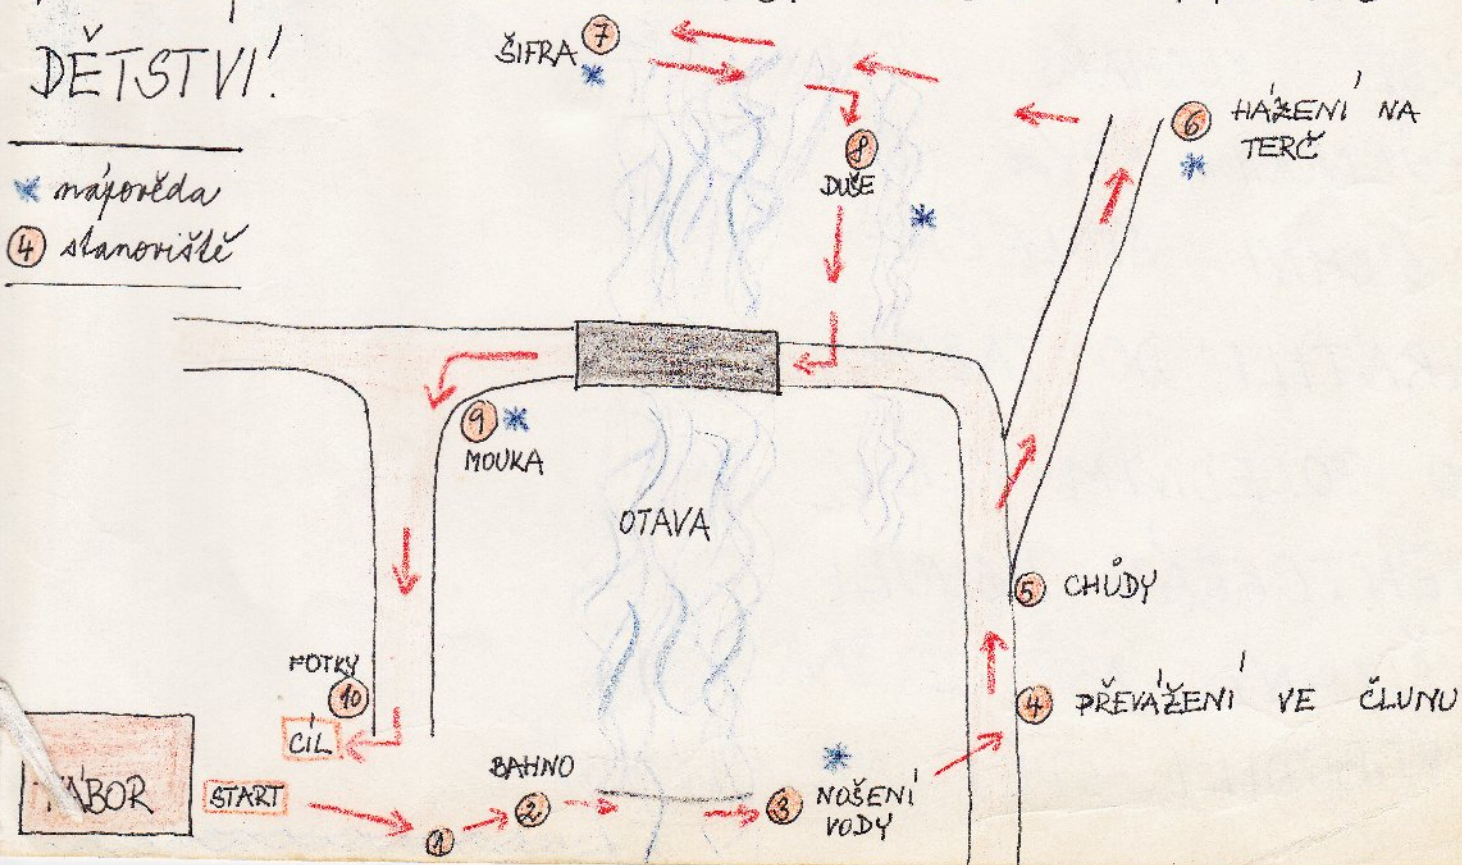 DĚTSTVÍ!
nápověda
4 stanoviště
ŠIFRA 7
6 HÁZENÍ NA
TERČ
8
DUŠE
9
MOUKA
OTAVA
5 CHŮDY
FOTKY
10
4 PŘEVÁŽENÍ VE ČLUNU
CÍL
TÁBOR
START
1
BAHNO
2
3 NOŠENÍ
VODY